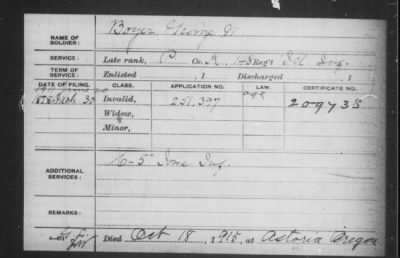 NAME OF SOLDIER: Boyer George W.
SERVICE: Late rank, P Co. K, 148 Reg't Ill Inf.
TERM OF SERVICE: Enlisted , 1 Discharged , 1
DATE OF FILING. CLASS. APPLICATION NO. LAW. CERTIFICATE NO.
1878 30 Invalid, 251,397 209735
Widow,
Minor,
ADDITIONAL SERVICES: K-5" Iowa Inf.
REMARKS:
Died Oct 18, 1915, at Astoria Oregon